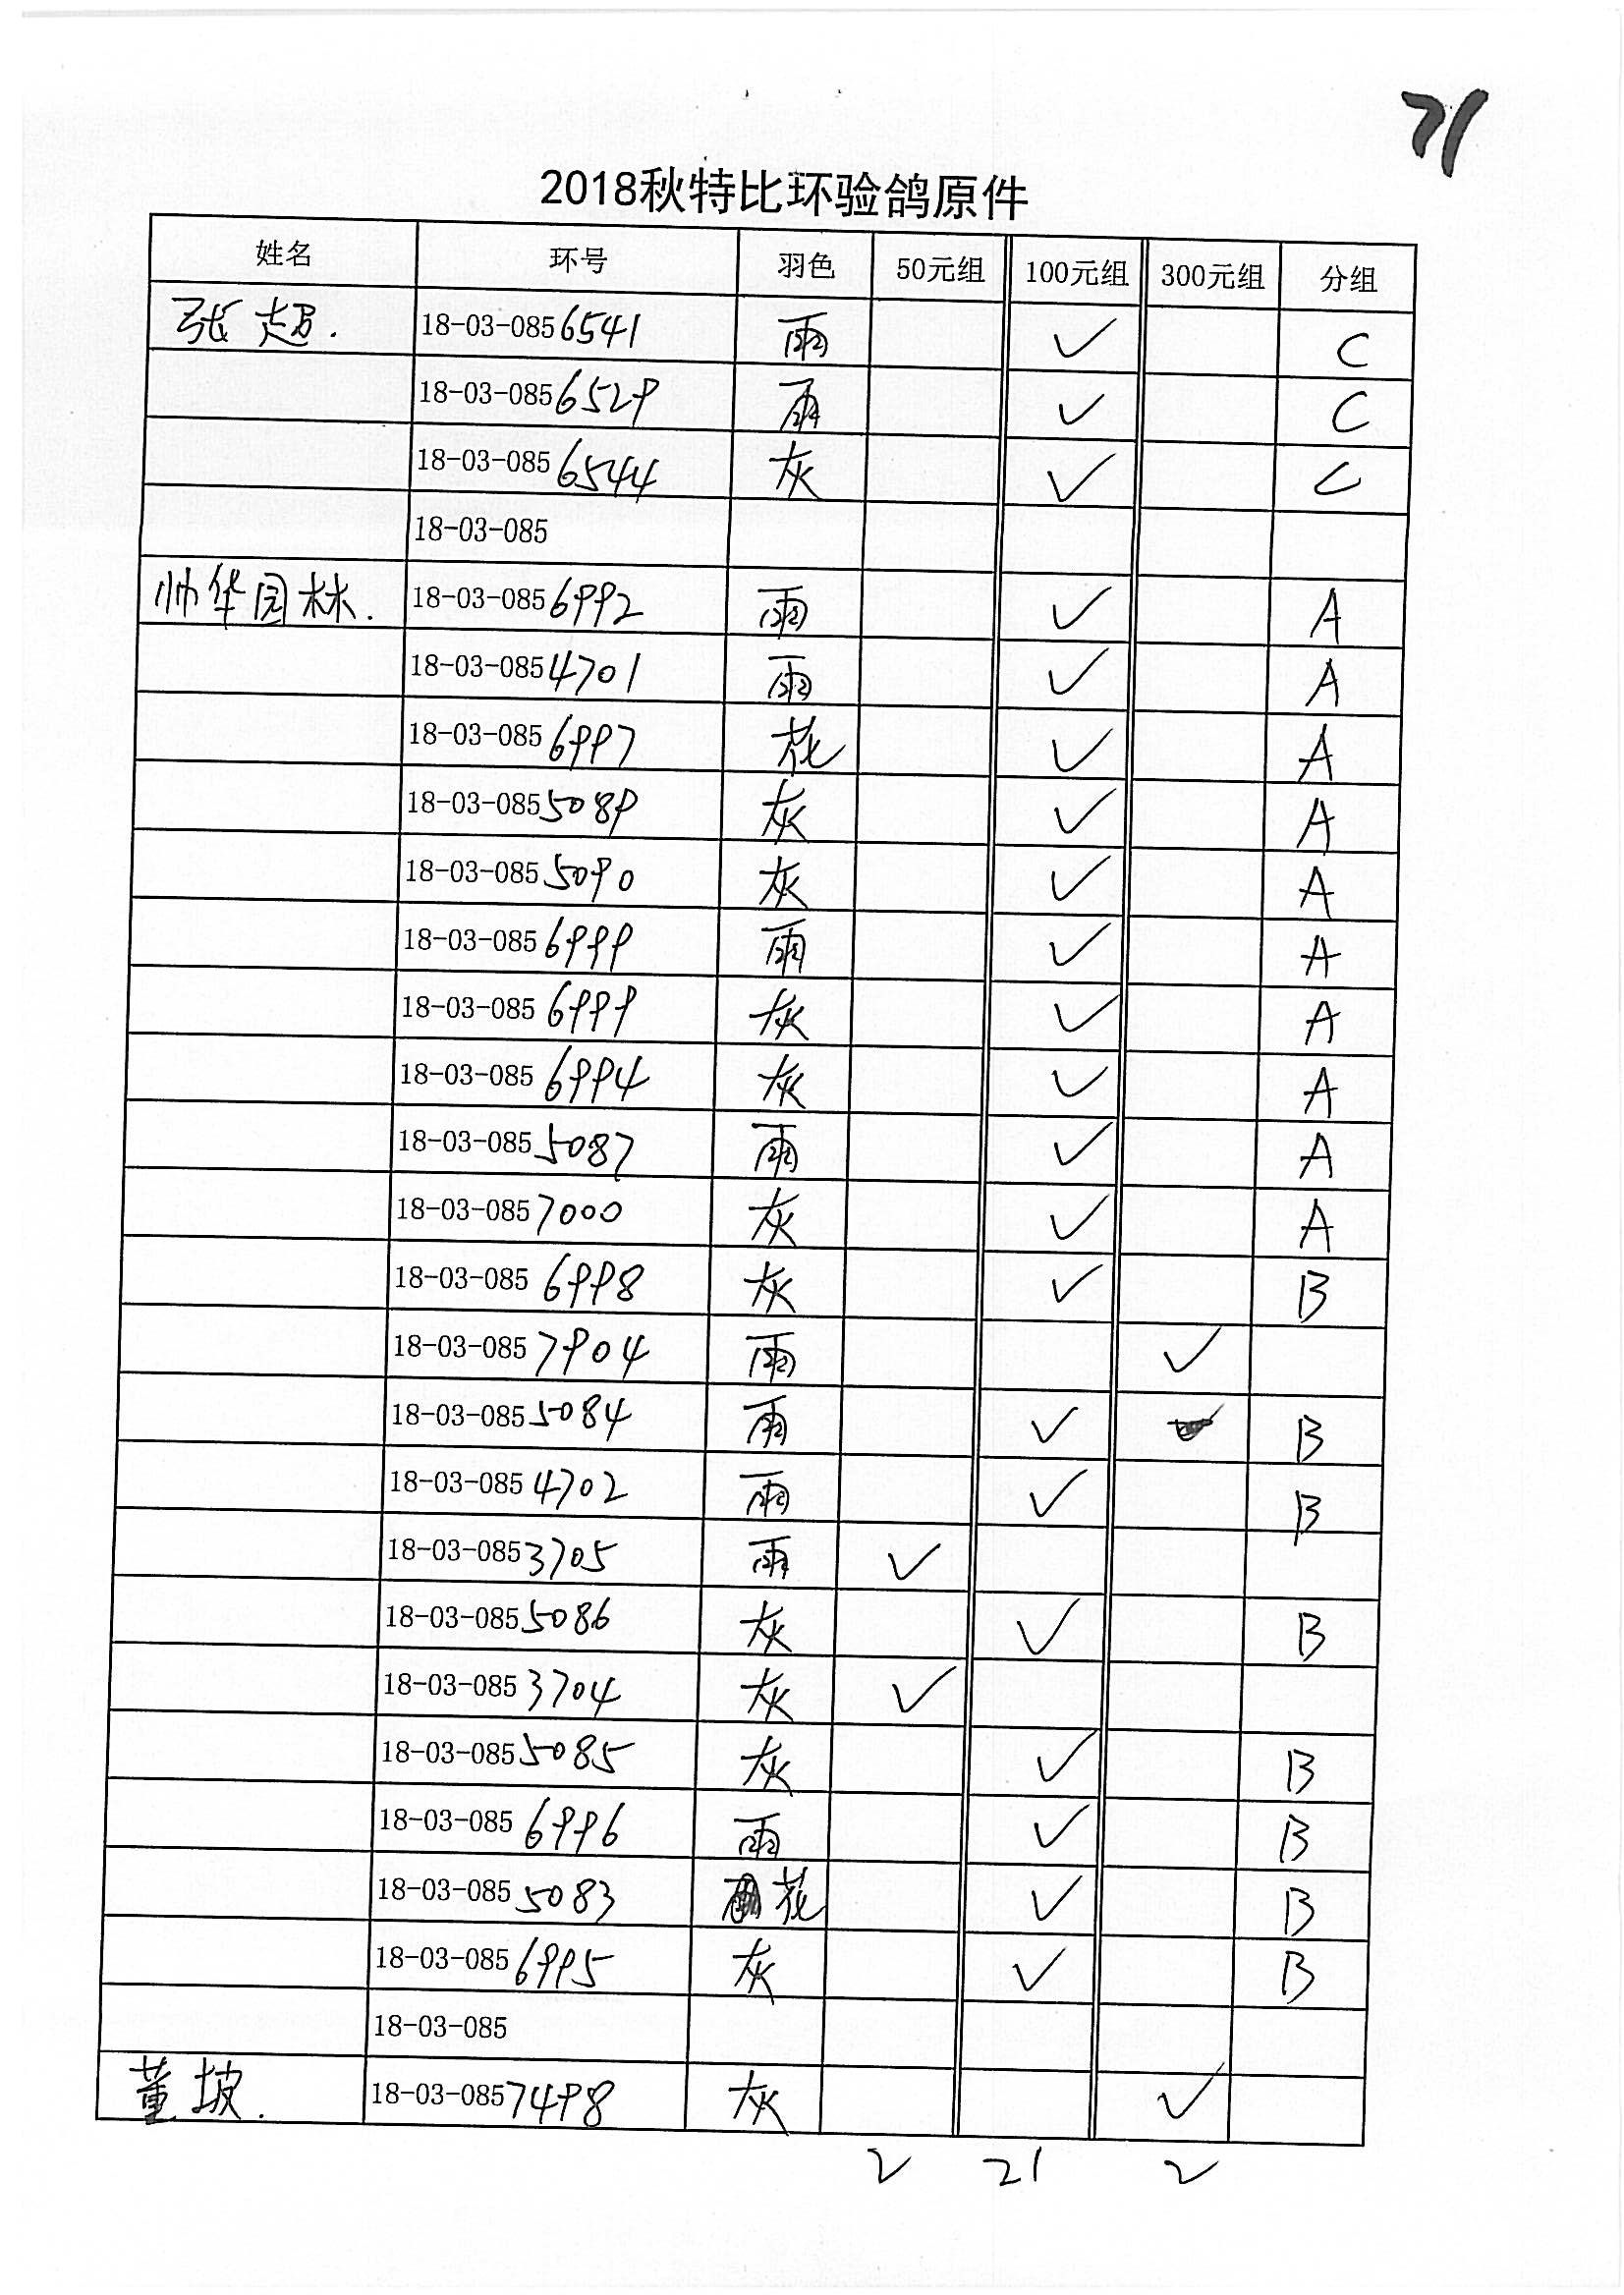 71
2018秋特比环验鸽原件
姓名 环号 羽色 50元组 100元组 300元组 分组
张超. 18-03-0856541 雨 ✓ C
18-03-0856529 雨 ✓ C
18-03-0856544 灰 ✓ C
18-03-085
帅华园林. 18-03-0856992 雨 ✓ A
18-03-0854701 雨 ✓ A
18-03-0856997 花 ✓ A
18-03-0855089 灰 ✓ A
18-03-0855090 灰 ✓ A
18-03-0856999 雨 ✓ A
18-03-085 灰 ✓ A
18-03-0856994 灰 ✓ A
18-03-0855087 雨 ✓ A
18-03-0857000 灰 ✓ A
18-03-0856998 灰 ✓ B
18-03-0857904 雨 ✓
18-03-0855084 雨 ✓ B
18-03-0854702 雨 ✓ B
18-03-0853705 雨 ✓
18-03-0855086 灰 ✓ B
18-03-0853704 灰 ✓
18-03-0855085 灰 ✓ B
18-03-0856996 雨 ✓ B
18-03-0855083 花 ✓ B
18-03-0856995 灰 ✓ B
18-03-085
董坡. 18-03-0857498 灰 ✓
2 21 2